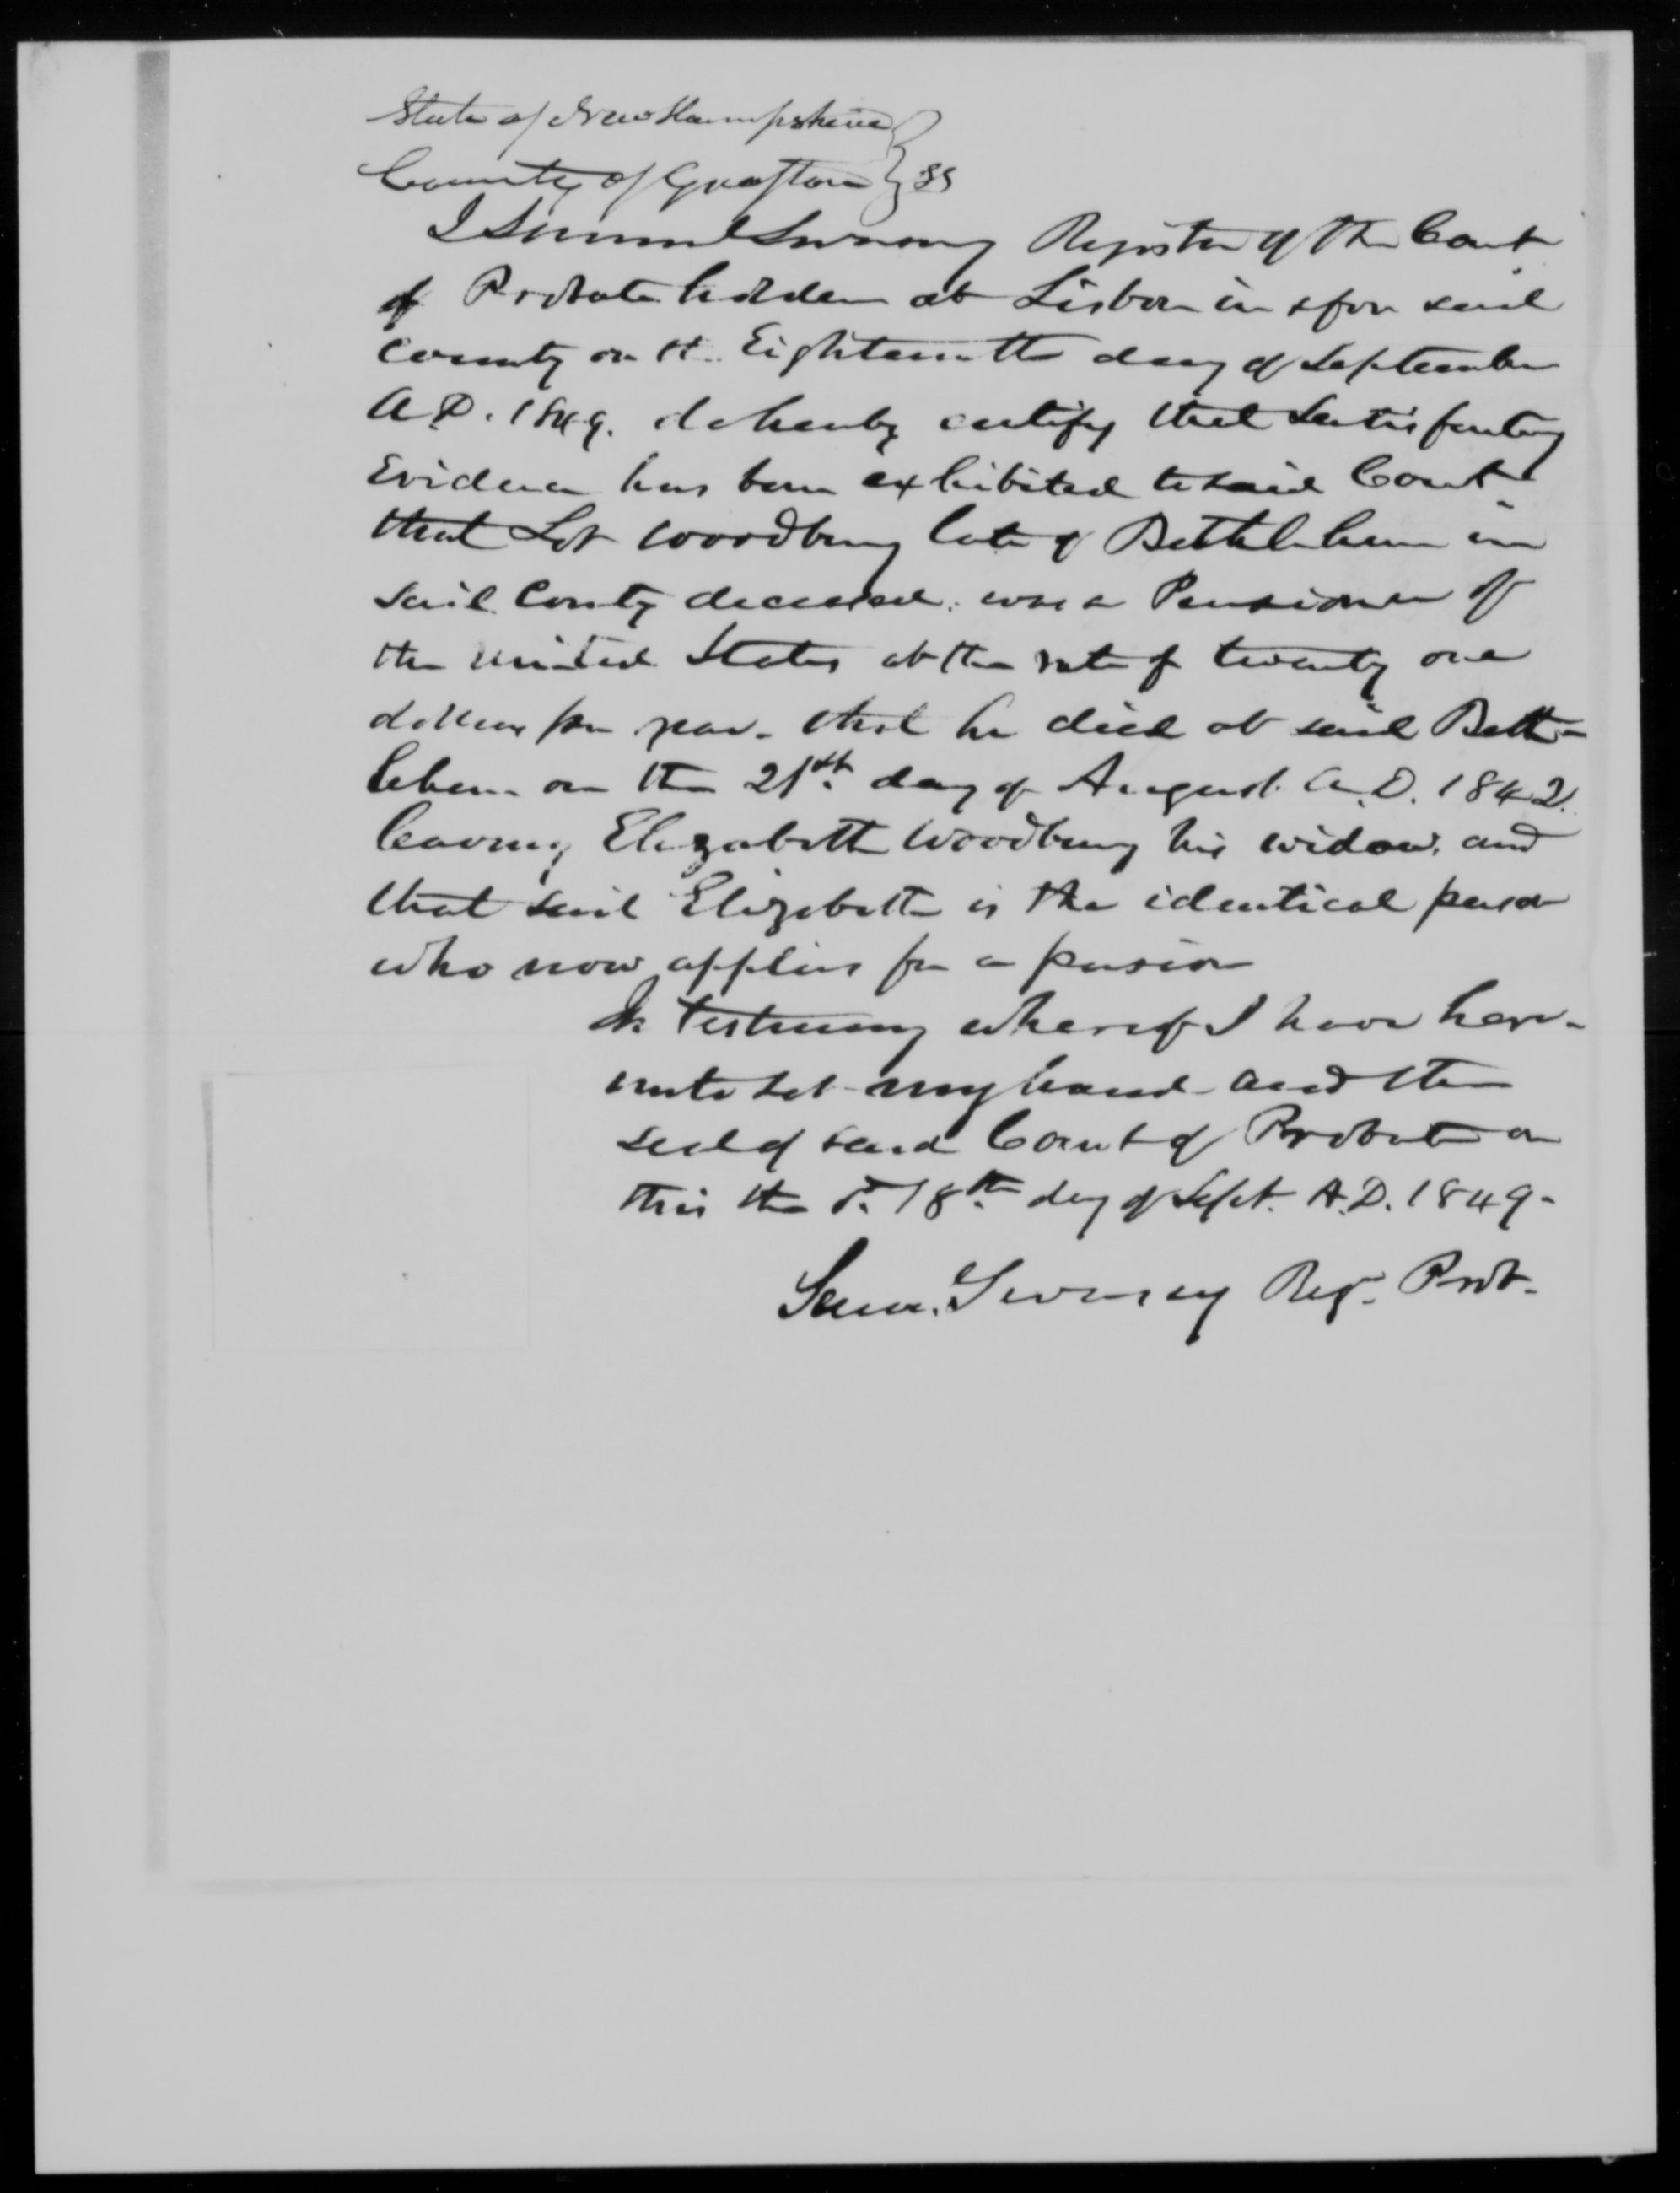 State of New Hampshire }
County of Grafton } SS
I Samuel Swasey Register of the Court
of Probate holden at Lisbon in & for said
County on the Eighteenth day of September
A.D. 1849. do hereby certify that Satisfactory
Evidence has been exhibited to said Court
that Lot Woodbury late of Bethlehem in
said County deceased. was a Pensioner of
the United States at the rate of twenty one
dollars per year. that he died at said Beth-
lehem on the 21st. day of August A.D. 1842.
leaving Elizabeth Woodbury his widow. and
that said Elizabeth is the identical person
who now applies for a pension
In testimony whereof I have here-
unto set my hand and the
seal of said Court of Probate on
this the 18th day of Sept. A.D. 1849-
Sam. Swasey Regr. Prob.